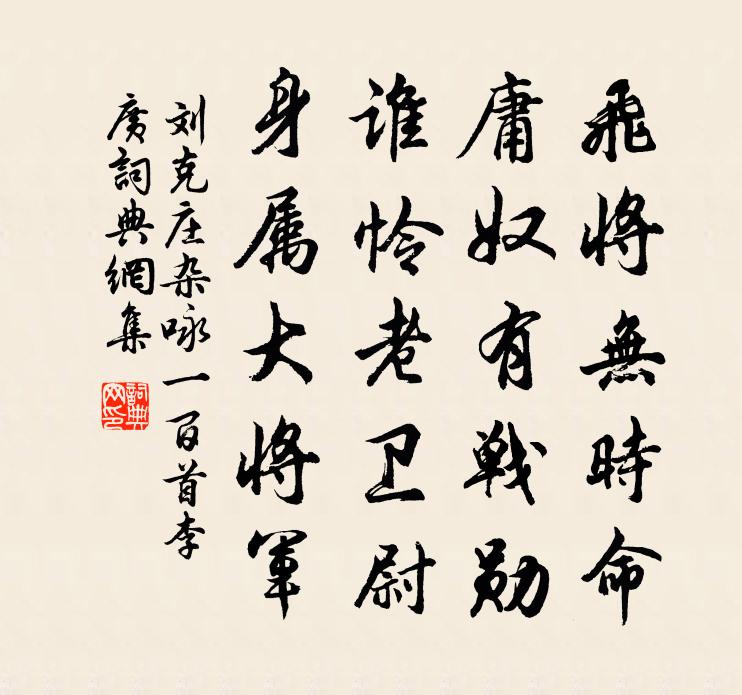 飛將無時命
庸奴有戰勋
谁怜老卫尉
身属大将軍
刘克庄杂咏一百首李
廣詞典網集
詞典
网印